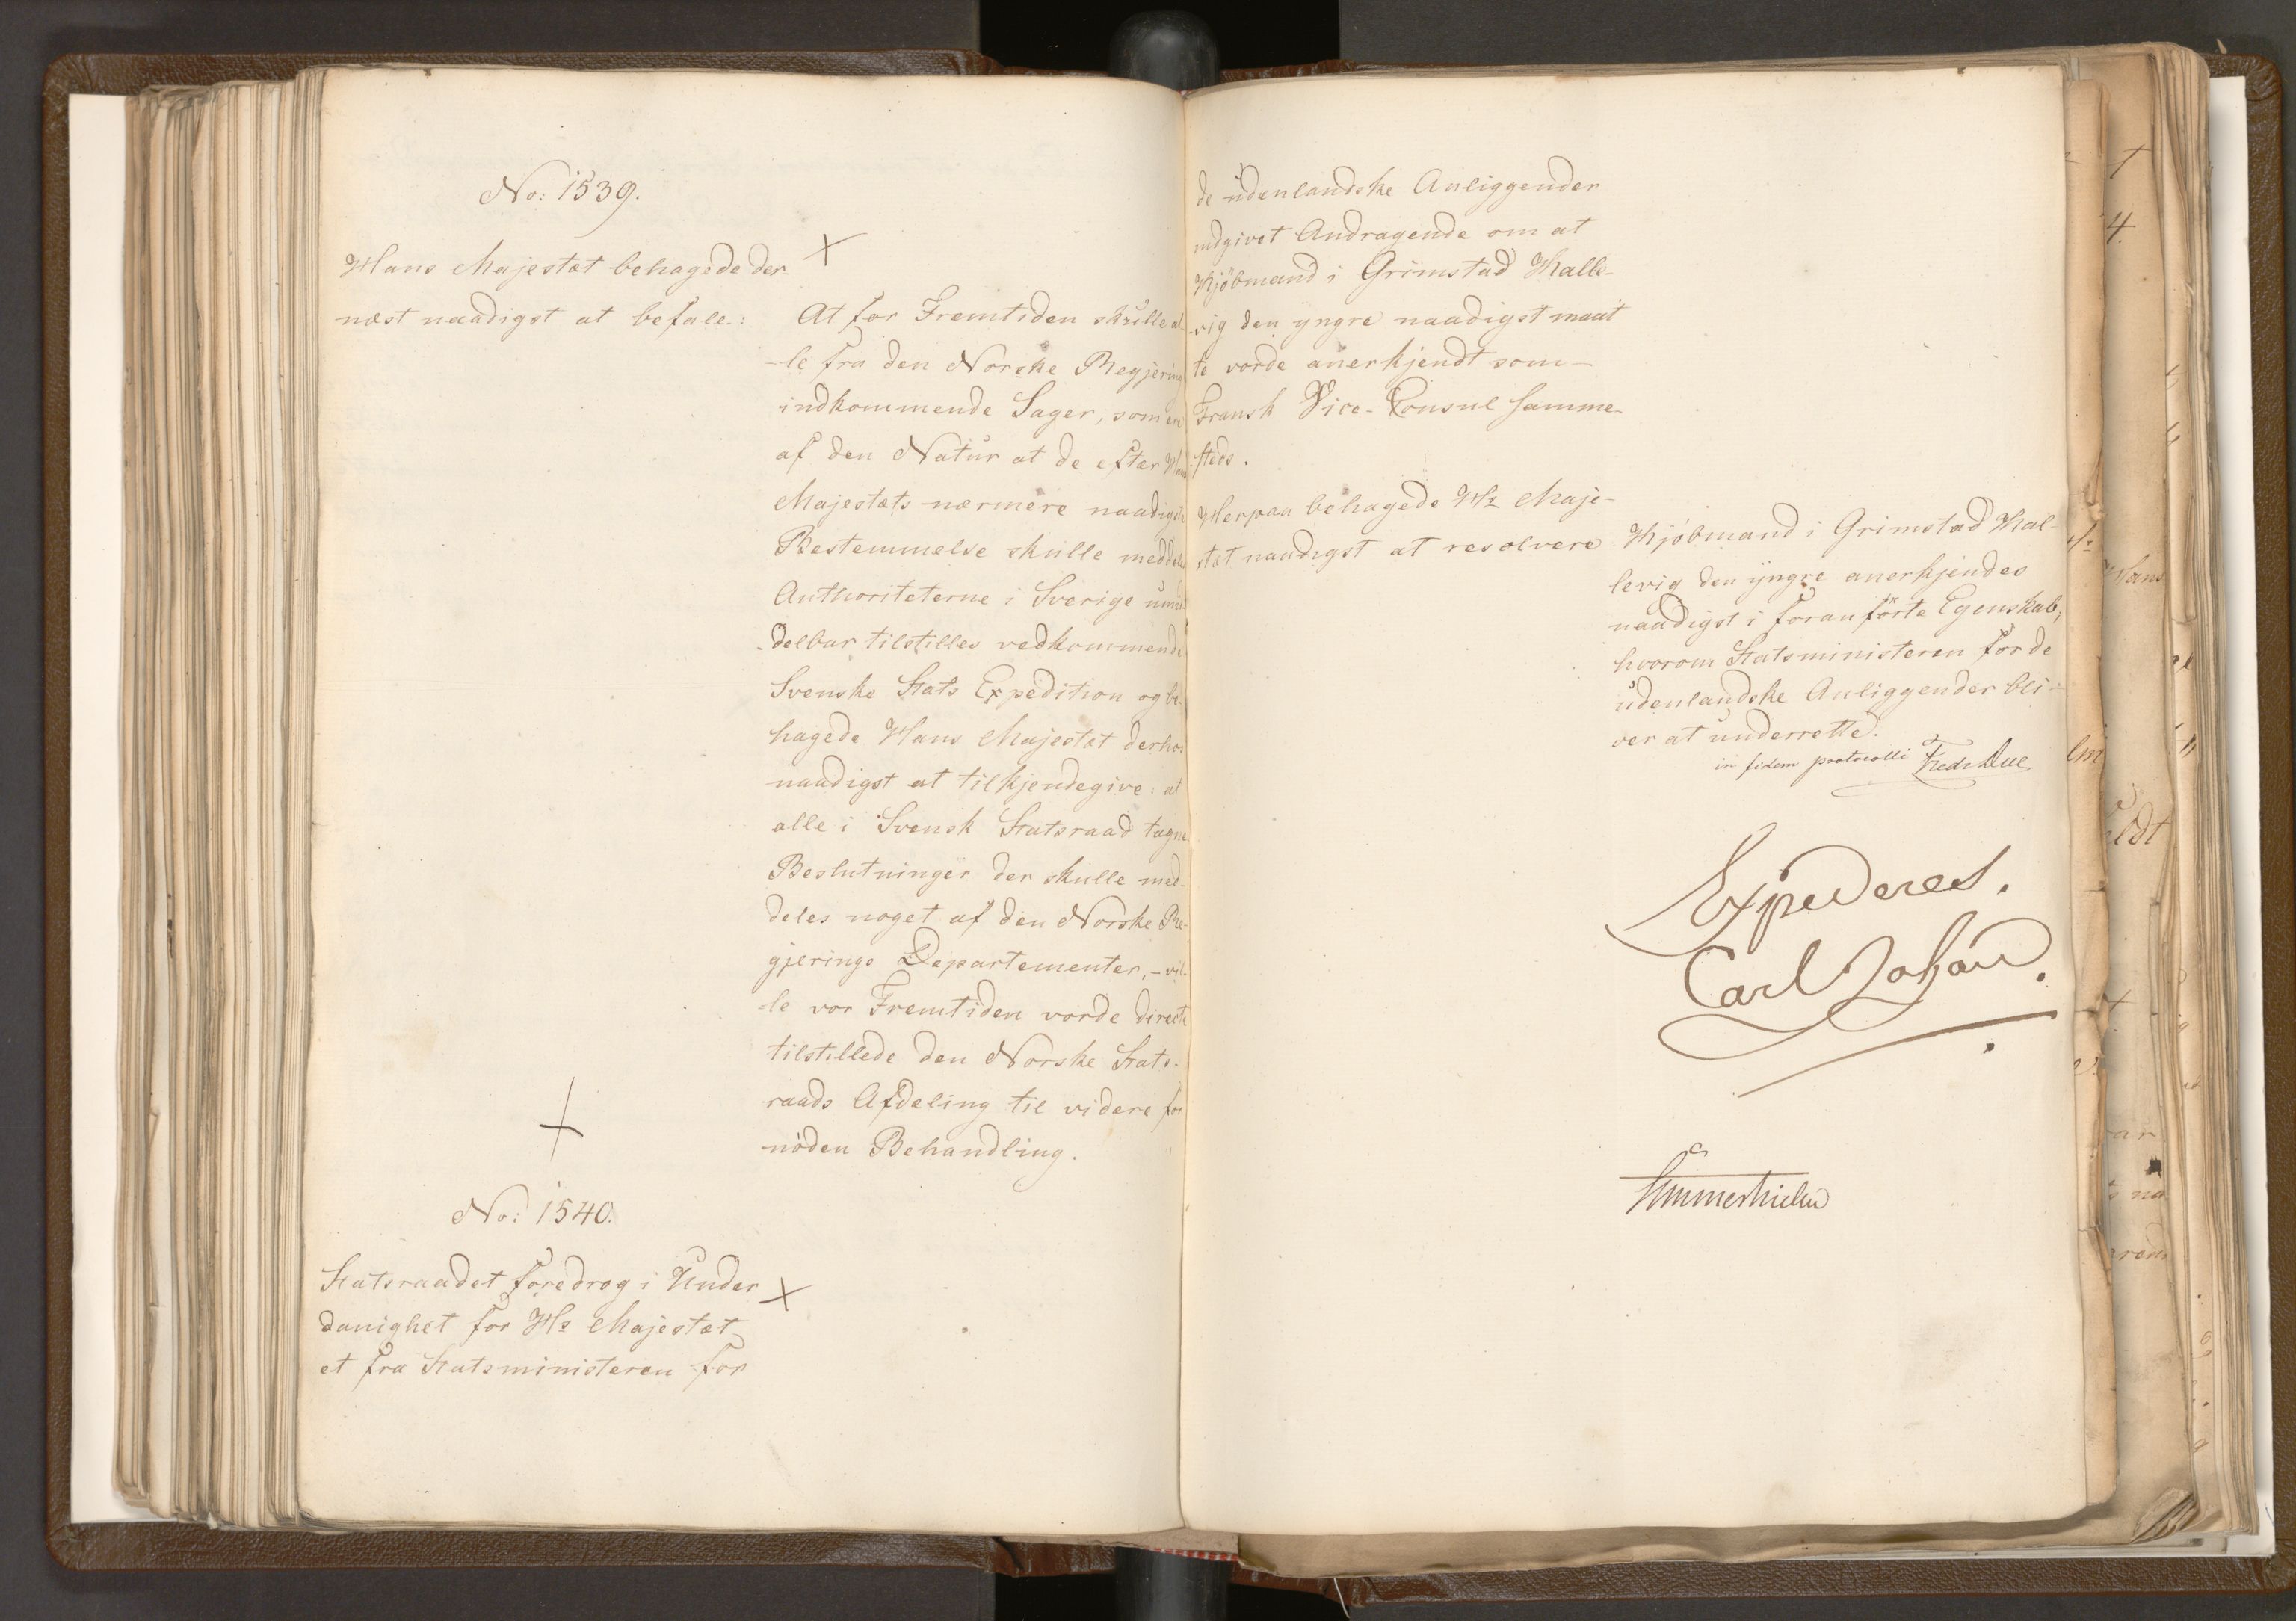 No: 1539.
Hans Majestæt behagede der-
næst naadigst at befale:
At for Fremtiden skulle al
-le fra den Norske Regjering
indkommende Sager, som ere
af den Natur at de efter Hans
Majestæts nærmere naadigste
Bestemmelse skulle meddeles
Authoriteterne i Sverige umid
-delbar tilstilles vedkommende
Svenske Stats Expedition og be-
hagede Hans Majestæt derhos
naadigst at tilkjendegive: at
alle i Svensk Statsraad tagne
Beslutninger der skulle med-
deles noget af den Norske Re-
gjerings Departementer, - vil-
-le vor Fremtiden vorde directe
tilstillede den Norske Stats-
raads Afdeling til videre for
nöden Behandling.
No: 1540.
Statsraadet foredrog i Under
danighet for Hs Majestæt
et fra Statsministeren for
de udenlandske Anliggender
indgivet Andragende om at
Kjöbmand i Grimstad Halle-
-vig den yngre naadigst maat
te vorde anerkjendt som
Fransk Vice-Consul samme-
steds.
Herpaa behagede Hs Maje-
stæt naadigst at resolvere
Kjöbmand i Grimstad Hal-
levig den yngre anerkjendes
naadigst i foranförte Egenskab,
hvorom Statsministeren for de
udenlandske Anliggender bli-
ver at underrette.
in fidem protocolli Fredr Due
Expederes.
Carl Johan.